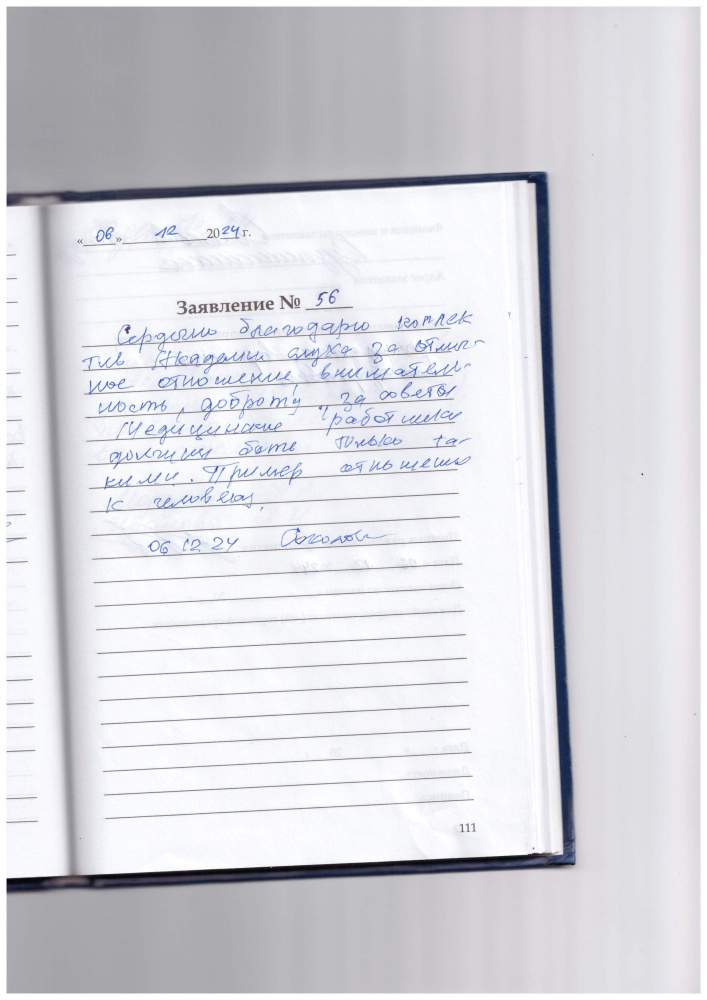 «06» 12 2024 г.
Заявление № 56
Сердечно благодарю коллек
тив Академии слуха за отлич-
ное отношение, вниматель-
ность, доброту, за советы
Медицинские работники
должны быть только та-
кими. Пример отношения
к человеку.
06 12 24
111